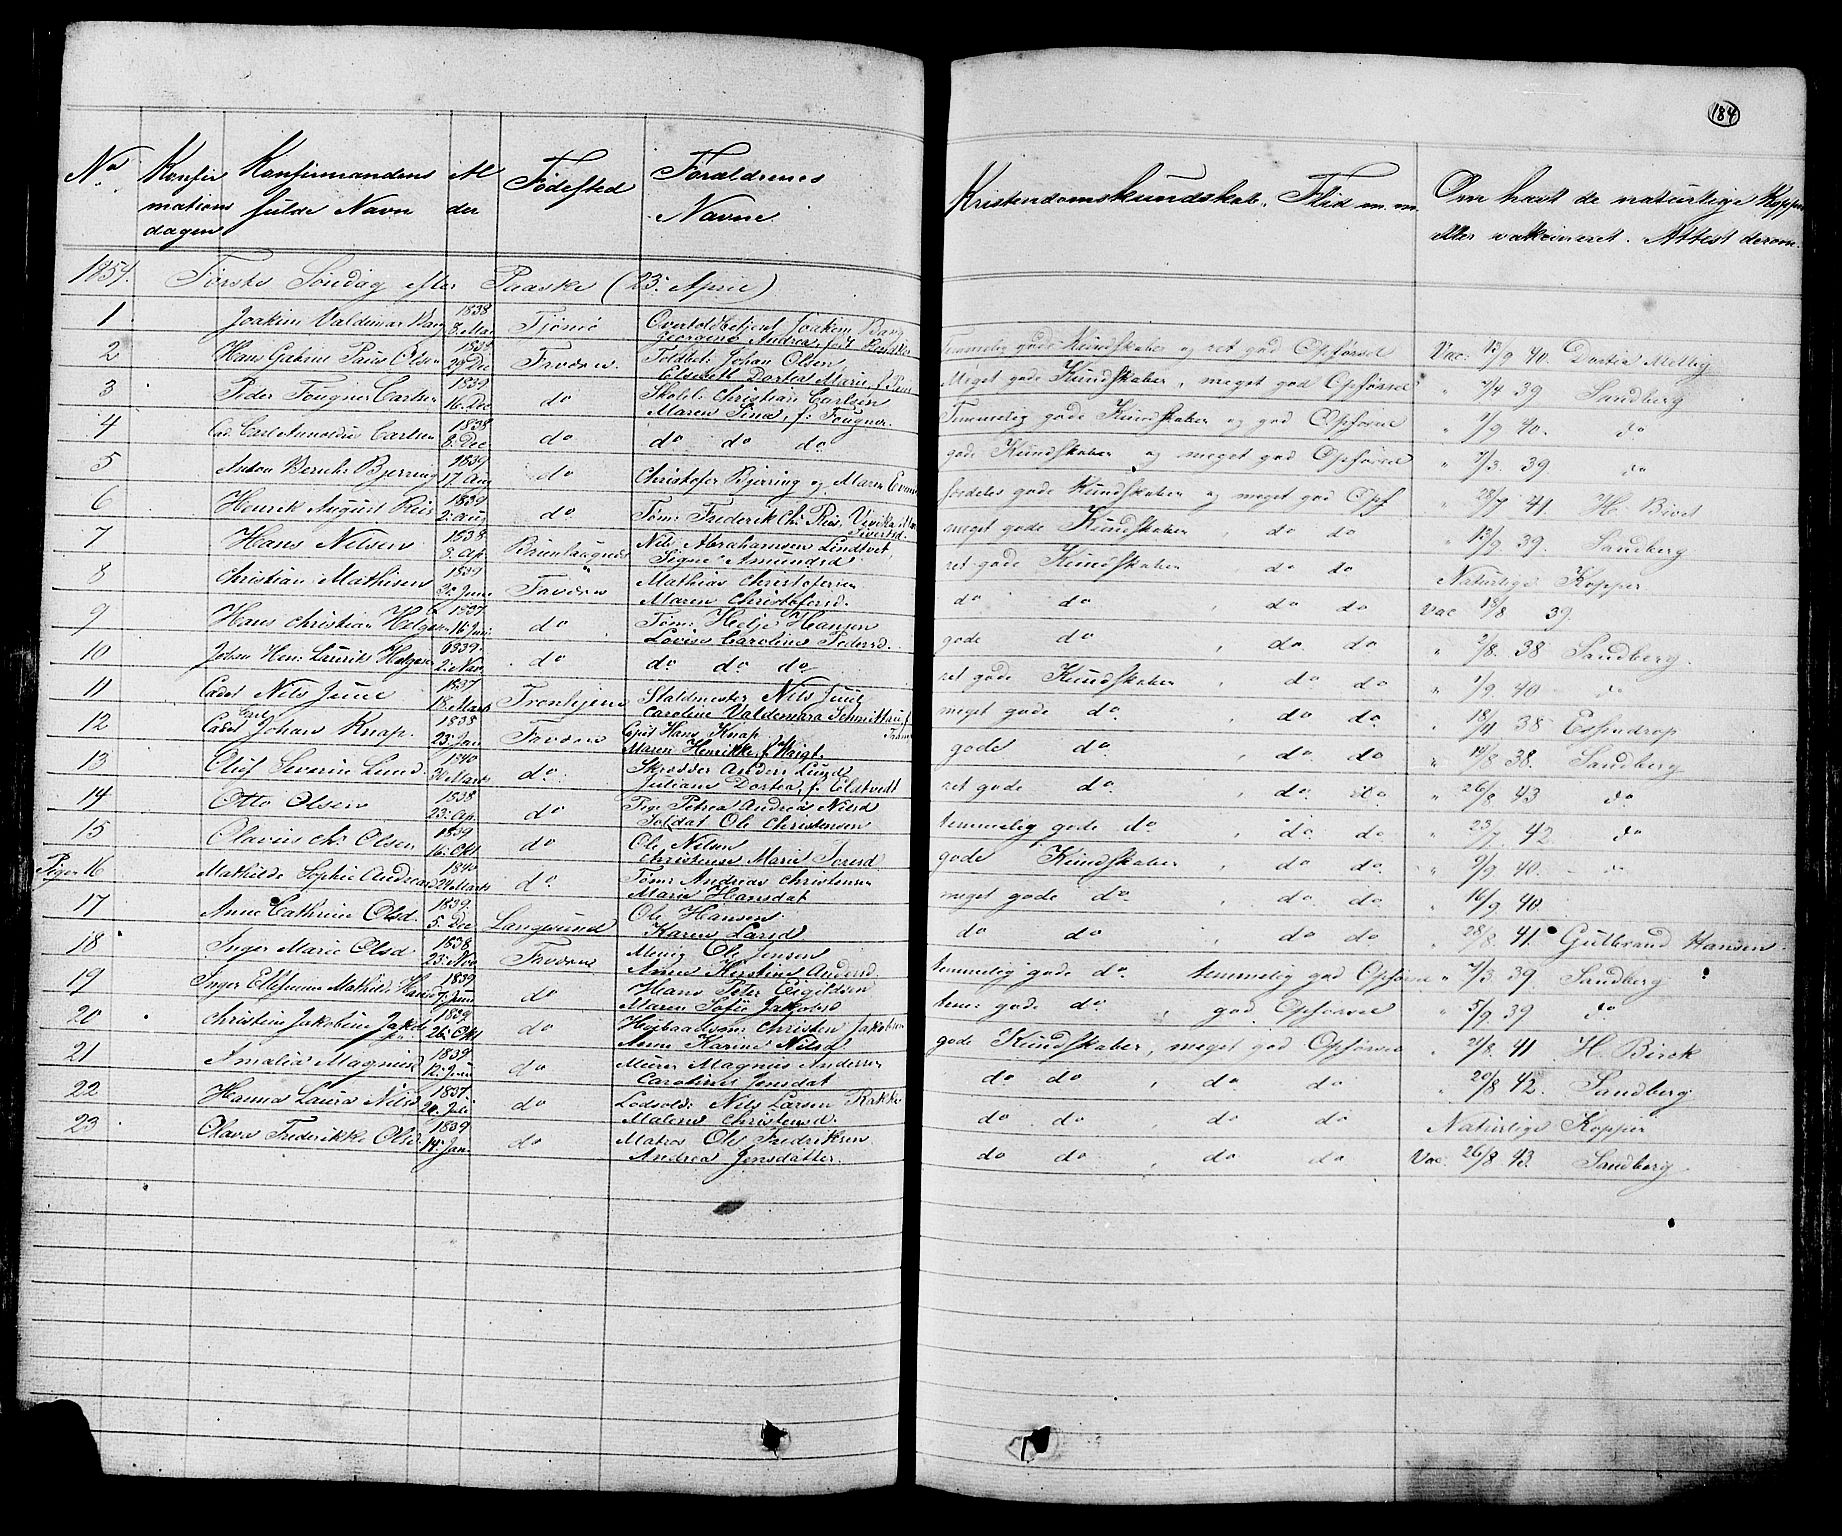 184
No Konfirmationsdagen Konfirmandens fulde Navn Alder Fødested Forældrenes Navne Kristendomskundskab, Flid m.m. Om havt de naturlige Kopper eller vakcineret. Attest derom.
1854. Første Søndag efter Paaske (23. April)
1 Joakim Valdemar Bang 1838 8. Mai Tjömö Overtoldbetjent Joakim Bang
Georgine Andrea, født
Temmelig gode Kundskaber og ret god Opførsel Vac: 13/9 40. Dortia Mellig
2 Hans Gabriel Paus Olsen 29 Dec Toldbetj. Johan Olsen
Elisabeth Dortea Marie, f.
Meget gode Kundskaber, meget god Opførsel " 7/4 39 Sandberg
3 Peder Fougner Carlsen 1839 16. Dec do Skolel: Christian Carlsen
Maren Sina, f: Fougner.
Temmelig gode Kundskaber og god Opførsel " 1/9 40. do
4 Cad. Carl Arnoldus Carlsen 1838 8. Dec do do do do
gode Kundskaber og meget god Opførsel " 7/3. 39 do
5 Anton Bernh: Bjerring 1839 17. Aug do Christofer Bjerring og Maren
fordeles gode Kundskaber og meget god Opf " 28/7 41 H.
6 Henrik August Riis 1839 2. Aug do Tøm: Frederik Ch: Riis,
meget gode Kundskaber, do do " 13/9 39. Sandberg
7 Hans Nilsen 1838 8. Ap. Brunlaugnes Nils Abrahamsen Lindtvet
Signe Amundsd
ret gode Kundskaber do do Naturlige Kopper
8 Christian Mathisen 1839 Mathias Christofersen
Maren Christofersd.
do do, do do Vac 13/8 39.
9 Hans Christian Helgesen 1837 16 Juni do Tøm: Helje Hansen
Lovise Caroline Pedersd.
gode do, do do " 2/8. 38 Sandberg.
10 Johan Hen: Laurits Helgesen 1839. 2. Nov. do do do do
ret gode Kundskaber, do do " 1/9 40 do
11 Cadet Nils Juul 1837 18. Marts Tronhjem Staldmester Nils Juul
Caroline Valdemara
meget gode do, do do " 18/4 38 Essendrop
12 Cadet Carl Johan Knap. 1838 23. Jan Capit Hans Knap.
Maren Henrikke, f. Waigt.
gode do, do do " 14/8 38. Sandberg
13 Oluf Severin Lund 1840 Marts do. Skrædder Anders Lund
Juliane Dortea, f. Eldtvedt
ret gode do. do do " 26/8 43 do
14 Otto Olsen 1838 23. Ap. do Pige Petrea Andrea Nilsd
Soldat Ole Christensen
temmelig gode do, do do " 23/7 42 do
15 Olavius Ch: Olsen 1839 16. Okt do Ole Nelsen
Christense Marie
gode Kundskaber, do do " 9/9 40. do
Piger 16 Mathilde Sophie 1840 Marts do. Tøm: Andreas Christensen
Maria Hansdat
meget gode do. do do " 16/9 40
17 Anne Cathrine Olsd. 1839. 5. Dec Langesund Ole Hansen
Karen Larsd.
do do, do do " 28/8. 41. Gulbrand Hansen.
18 Inger Marie Olsd 1838 23. Nov Ole Jensen
Anne Kirstine Andersd
temmelig gode do temmelig god Opførsel " 7/3 39 Sandberg
19 Inger Mathilde 1839 Juni do Hans Peter Eigildsen
Maren Sofie Jakobsd
tem: gode do, god Opførsel " 5/9 39 do
20 Christine Jakobine Jakobsd 1839 26. Okt do Christen Jakobsen
Anne Karine Nilsd
gode Kundskaber, meget god Opførsel " 21/8. 41 H. Birch
21 Amalia Magnusd 1839 12. Juni do Murer Magnus Andersen
Caroline Jensdat
do do, do do 20/8 42. Sandberg
22 Hanna Laura Nilsd 1837 20. Juli do Lodsold: Nils Larsen Rakke
Malene Christensd.
do do do do Naturlige Kopper
23 Olava Frederikke Olsd 1839 14. Jan do Matros Ole Fredriksen
Andrea Jensdatter.
do do, do do Vac. 26/8 43. Sandberg.